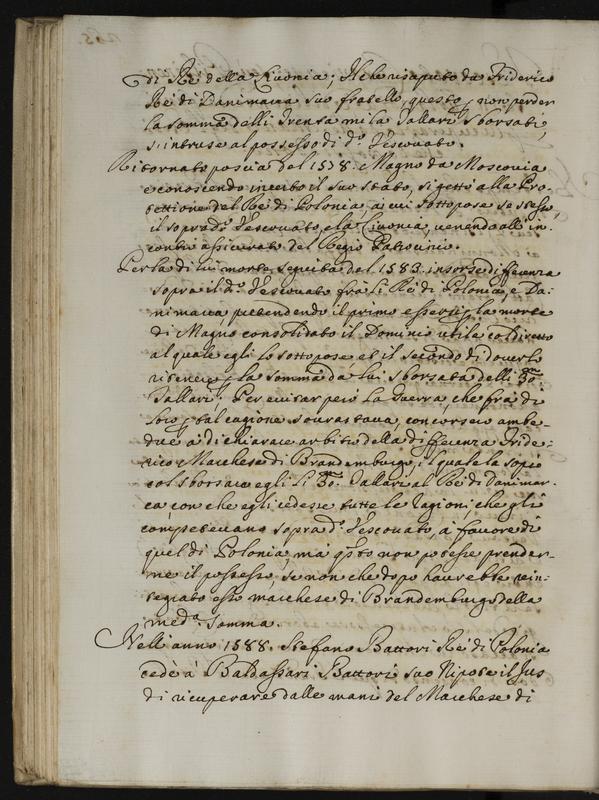 di Rè della Livonia; Il che risaputo da Friderico
Rè di Danimarca suo fratello, questo p non perder
la somma delli trenta mila Tallari sborsati,
s'intruse al possesso di d.º Vescovato.
Ritornato poscia del 1578. Magno da Moscovia
e conoscendo incerto il suo stato, si gettò alla Pro-
tettione del Rè di Polonia, à cui sottopose se stesso,
il soprad.º Vescovato, e la Livonia, venendo all' in-
contro assicurato del Regio Patrocinio.
Per la di lui morte seguita del 1583. insorse differenza
sopra il d.º Vescovato frà li Rè di Polonia, e Da-
nimarca, pretendendo il primo essersi p la morte
di Magno consolidato il Dominio utile col diretto
al quale egli lo sottopose, et il secondo di doverlo
ritenere p la somma da lui sborsata delli 30.m
Tallari; Per evitar però la Guerra, che frà di
loro p tal cagione sourastava, concorsero ambe-
duoi à dichiarare arbitro della differenza Fride-
rico Marchese di Brandemburgo, il quale la sopì
col sborsare egli li 30.m Tallari al Rè di Danimar-
ca con che egli cedesse tutte le ragioni che gli
competevano sopra d.º Vescovato, à favore di
quel di Polonia, mà q.sto non potesse prender-
ne il possesso, se non che dopo haverebbe rein-
tegrato esso marchese di Brandemburgo della
med.a somma.
Nell' anno 1588. Stefano Battori Rè di Polonia
cedè à Baldassari Battori suo Nipote il Jus
di ricuperare dalle mani del Marchese di